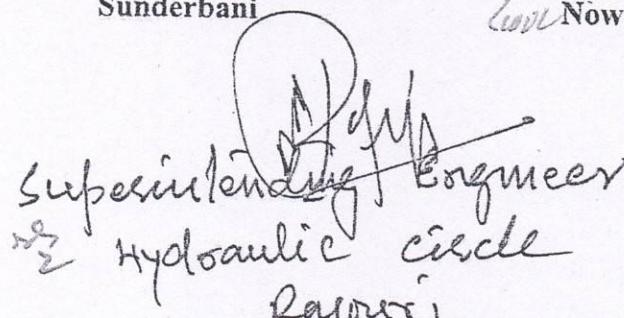 Sunderbani Now
Superintending Engineer
Hydraulic circle
Rajouri